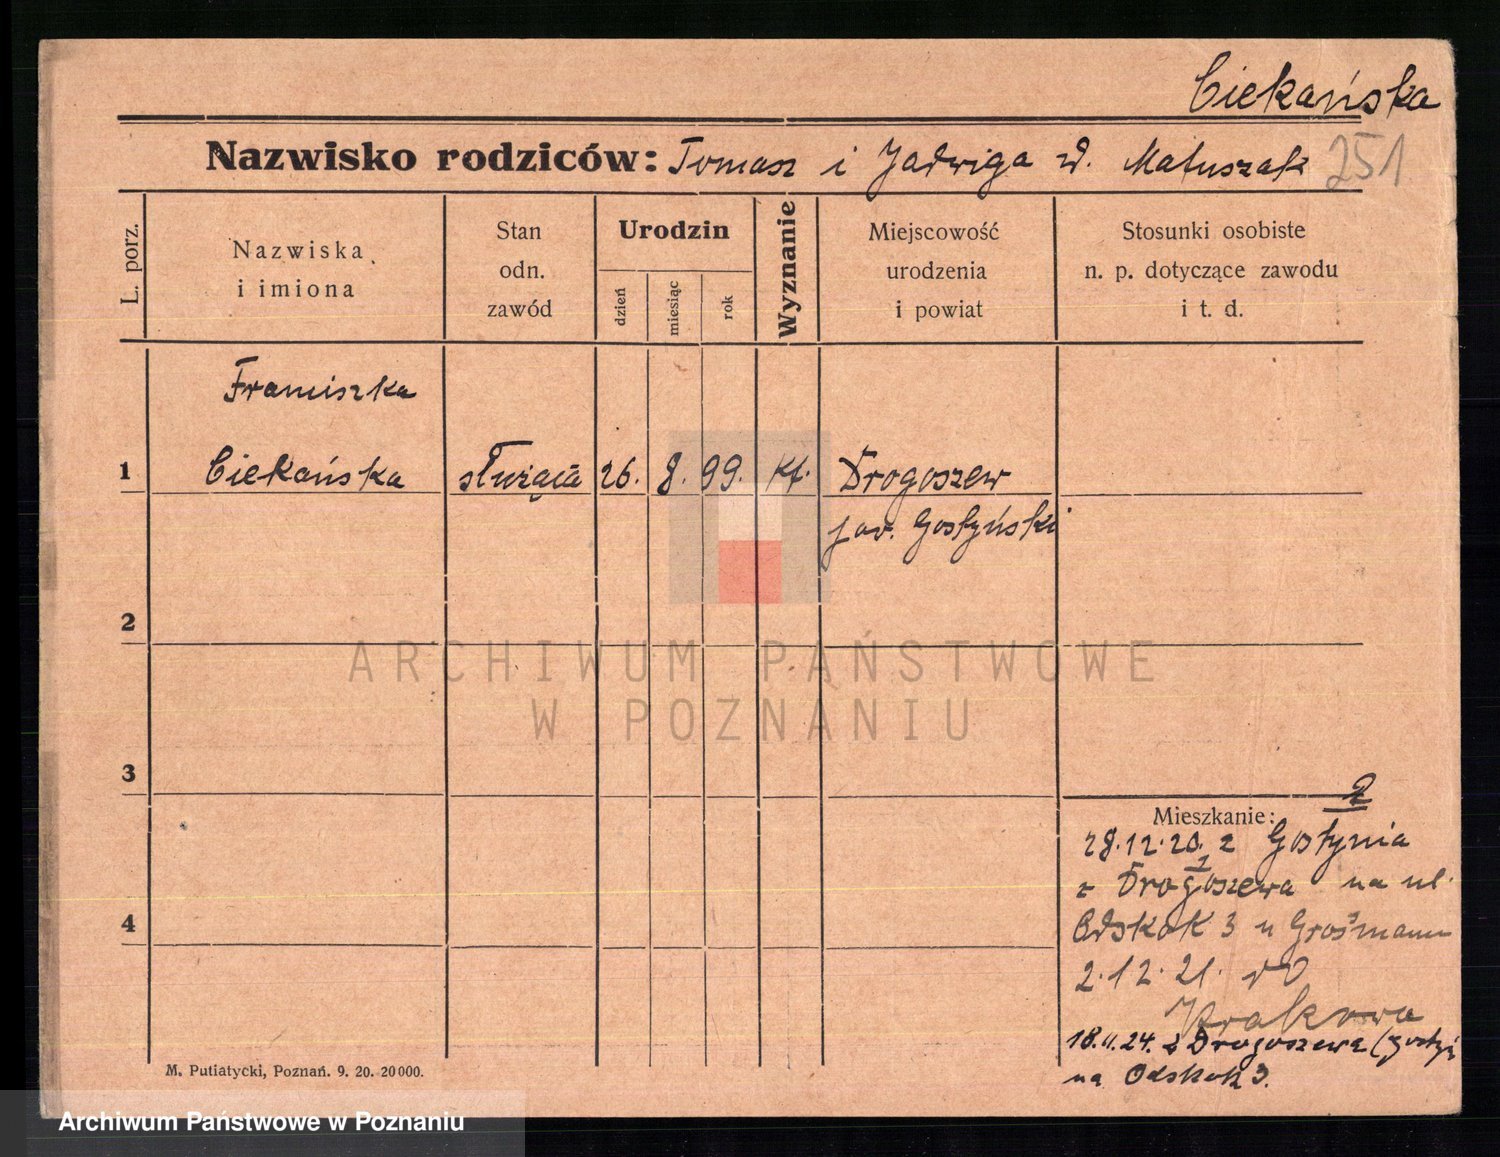 Ciekańska
Nazwisko rodziców: Tomasz i Jadwiga z d. Matuszak 251
L. porz.
Nazwiska i imiona
Stan odn. zawód
Urodzin
dzień
miesiąc
rok
Wyznanie
Miejscowość urodzenia i powiat
Stosunki osobiste n. p. dotyczące zawodu i t. d.
Franciszka
1 Ciekańska służąca 26. 8. 99. kt. Drogoszew
pow. Gostyński
2
ARCHIWUM PAŃSTWOWE
W POZNANIU
3
2
Mieszkanie:
28.12.20. z Gostynia
1
z Drogoszewa na ul.
Odskok 3 u
2.12.21. do
Krakowa
18.11.24. z Drogoszewa
na Odskok 3.
4
M. Putiatycki, Poznań. 9. 20. 20000.
Archiwum Państwowe w Poznaniu